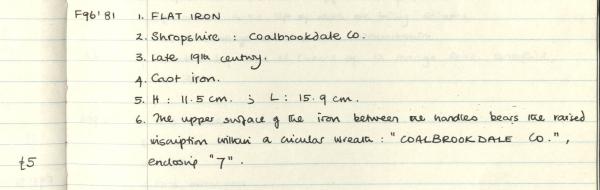 F96'81 1. FLAT IRON
2. Shropshire : Coalbrookdale Co.
3. Late 19th century.
4. Cast iron.
5. H : 11.5 cm. ; L : 15.9 cm.
6. The upper surface of the iron between the handles bears the raised
inscription within a circular wreath : "COALBROOKDALE CO.",
£5 enclosing "7".